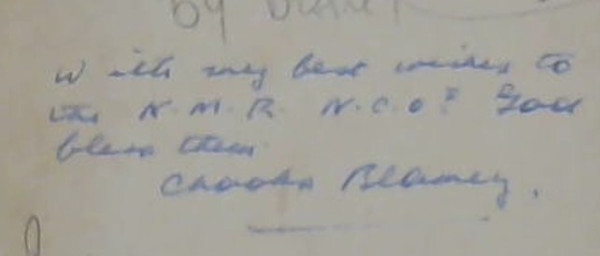 by
With my best wishes to
the N.M.R. N.C.Os God
bless them
Blamey.